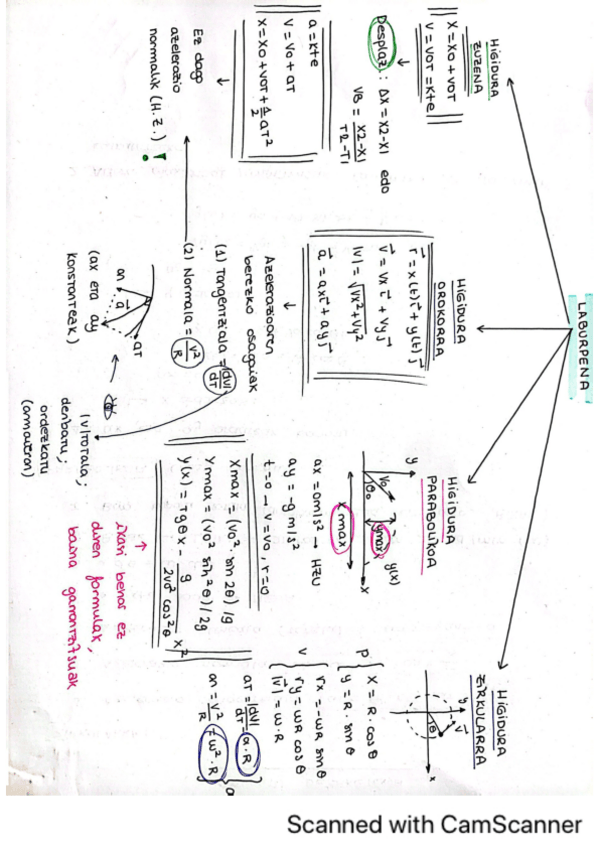 LABURPENA
HIGIDURA
ZUZENA
X = X0 + V0T
V = V0T = K+e
Desplaz: ΔX = X2-X1 edo
VB = X2-X1 / T2-T1
a = K+e
V = V0 + aT
X = X0 + V0T + 1/2 aT²
Ez dago
azelerazio
normalik (H.Z.) !
HIGIDURA
OROKORRA
r⃗ = x(t)i⃗ + y(t)j⃗
v⃗ = Vx i⃗ + Vy j⃗
|V| = √Vx²+Vy²
a⃗ = ax i⃗ + ay j⃗
Azelerazioaren
berezko osagaiak
(1) Tangentziala = |dV|/dT
(2) Normala = V²/R
an
a⃗
aT
(ax eta ay
konstanteak)
|V| totala;
denbaru,
ordezkatu
HIGIDURA
PARABOLIKOA
y
V0
θ0
ymax
y(x)
x
xmax
ax = 0m/s² → HZU
ay = -g m/s²
T=0 → V=V0, r=0
Xmax = (V0² · sin 2θ) /g
Ymax = (V0² sin²θ)/2g
y(x) = Tgθx - g / 2V0² cos²θ x²
ikasi behar ez
diren formulak,
baina garrantzitsuak
HIGIDURA
ZIRKULARRA
y
V⃗
θ
x
P
X = R · cosθ
y = R · sinθ
V
rx = -ωR sinθ
ry = ωR cosθ
|V⃗| = ω·R
a
aT = |dV|/dT = α·R
an = V²/R = ω²·R
Scanned with CamScanner